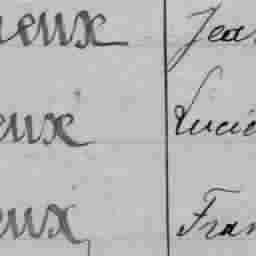 neux Jea
eux Lucie
eux Fran